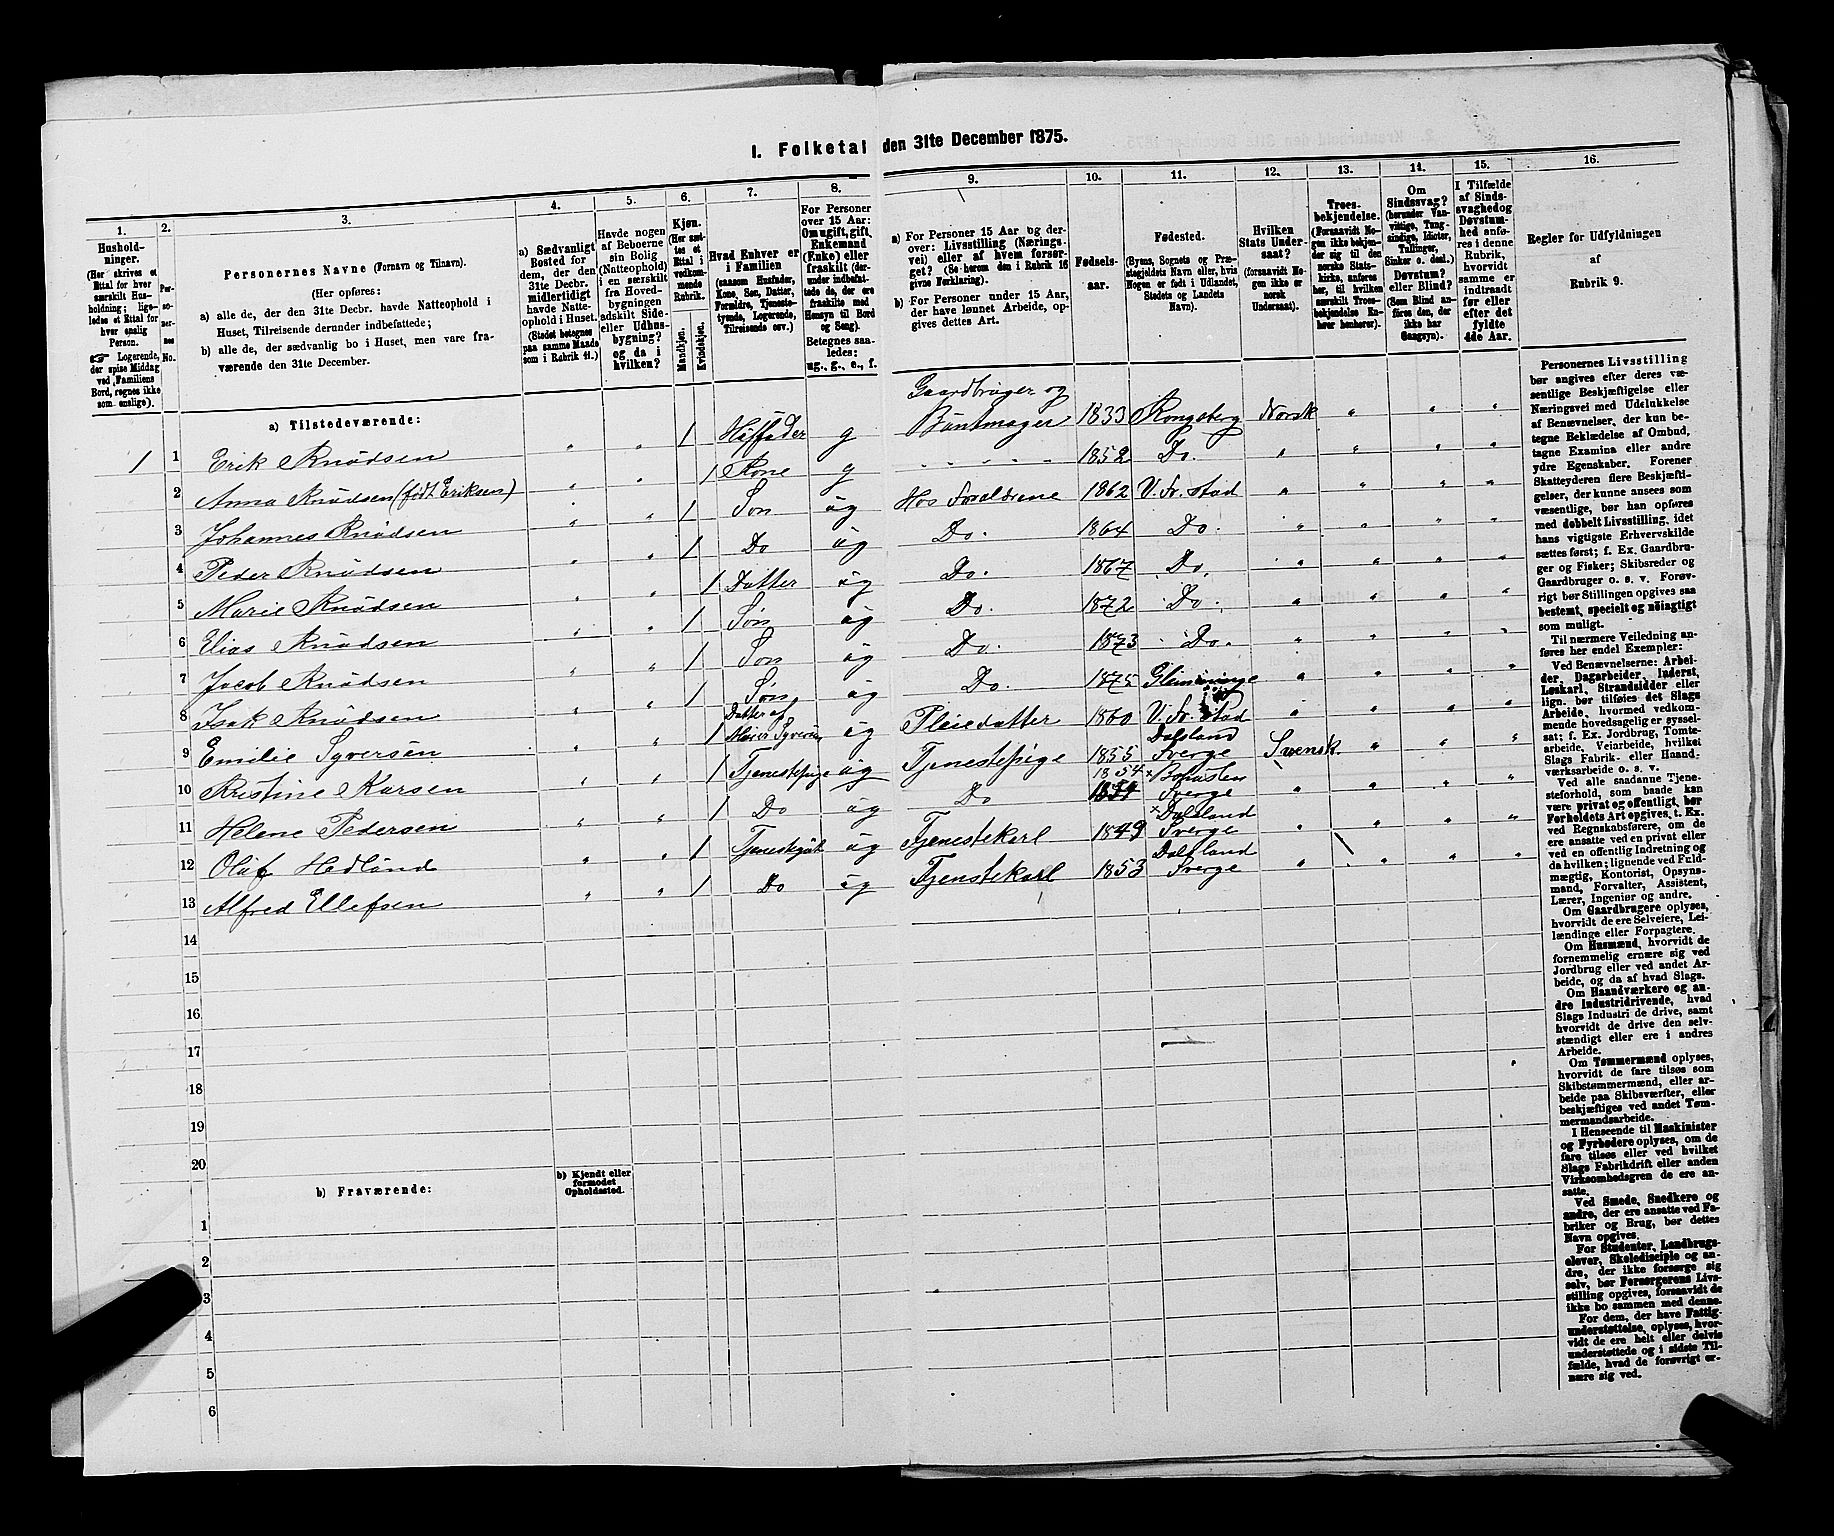 I. Folketal den 31te December 1875.
1. 2. 3. 4. 5. 6. 7. 8. 9. 10. 11. 12. 13. 14. 15. 16.
Husholdninger.
(Her skrives et Ettal for hver særskilt Husholdning; ligeledes et Ettal for hver enslig Person.
☞ Logerende, der spise Middag ved Familiens Bord, regnes ikke som enslige).
Personernes No.
Personernes Navne (Fornavn og Tilnavn).
(Her opføres:
a) alle de, der den 31te Decbr. havde Natteophold i Huset, Tilreisende derunder indbefattede;
b) alle de, der sædvanlig bo i Huset, men vare fraværende den 31te December.
a) Sædvanligt Bosted for dem, der den 31te Decbr. midlertidigt havde Natteophold i Huset.
(Stedet betegnes paa samme Maade som i Rubrik 11.)
Havde nogen af Beboerne sin Bolig (Natteophold) i en særskilt fra Hovedbygningen adskilt Side- eller Udhusbygning? og da i hvilken?
Kjøn.
(Her sættes et Ettal i vedkommende Rubrik.
Mandkjøn.
Kvindekjøn.
Hvad Enhver er i Familien
(saasom Husfader, Kone, Søn, Datter, Forældre, Tjenestetyende, Logerende, Tilreisende osv.)
For Personer over 15 Aar: Om ugift, gift, Enkemand (Enke) eller fraskilt (derunder indbefattede de, der ere fraskilte med Hensyn til Bord og Seng).
Betegnes saaledes: ug., g., e., f.
a) For Personer 15 Aar og derover: Livsstilling (Næringsvei) eller af hvem forsørget? (Se herom den i Rubrik 16 givne Forklaring).
b) For Personer under 15 Aar, der have lønnet Arbeide, opgives dettes Art.
Fødsels-aar.
Fødested.
(Byens, Sognets og Præstegjeldets Navn eller, hvis Nogen er født i Udlandet, Stedets og Landets Navn).
Hvilken Stats Undersaat?
(forsaavidt Nogen ikke er norsk Undersaat).
Troesbekjendelse.
(Forsaavidt Nogen ikke bekjender sig til den norske Statskirke, anføres her, til hvilken særskilt Troesbekjendelse Enhver henhører).
Om Sindssvag?
(herunder Vanvittige, Tungsindige, Idioter, Tullinger, Sinker o. desl.)
Døvstum? eller Blind?
(Som Blind anføres den, der ikke har Gangsyn).
I Tilfælde af Sindssvaghed og Døvstumhed anføres i denne Rubrik, hvorvidt samme er indtraadt før eller efter det fyldte 4de Aar.
Regler for Udfyldningen af Rubrik 9.
a) Tilstedeværende:
1 1 Erik Knudsen " " 1 Husfader g Gaardbruger og Buntmager 1833 Kongsberg Norsk " " "
2 Anna Knudsen (født Eriksen) " " 1 Kone g " " " " 1852 Do. " " " "
3 Johannes Knudsen " " 1 Søn ug Hos Forældrene 1862 V. Fr. stad " " " "
4 Peder Knudsen " " 1 Do ug Do. 1864 Do. " " " "
5 Marie Knudsen " " 1 Datter ug Do. 1867 Do. " " " "
6 Elias Knudsen " " 1 Søn ug Do. 1872 Do. " " " "
7 Jacob Knudsen " " 1 Søn ug Do. 1873 Do. " " " "
8 Isak Knudsen " " 1 Søn ug Do. 1875 Glemminge " " " "
9 Emilie Syversen " " 1 Datter af Maren Syversen ug Pleiedatter 1860 V. Fr. stad " " " "
10 Kristine Karsen " " 1 Tjenestepige ug Tjenestepige 1855 Dalsland Sverge Svensk " " "
11 Helene Pedersen " " 1 Do ug Do 1854 × Bohuslen Sverge " " " "
12 Olaf Hedlund " " 1 Tjenestegut ug Tjenestekarl 1849 × Dalsland Sverge " " " "
13 Alfred Ellefsen " " 1 Do ug Tjenstekarl 1853 Dalsland Sverge " " " "
14
15
16
17
18
19
20
b) Fraværende:
b) Kjendt eller formodet Opholdssted.
1
2
3
4
5
6
Personernes Livsstilling
bør angives efter deres væ-
sentlige Beskjæftigelse eller
Næringsvei med Udelukkelse
af Benævnelser, der kun be-
tegne Beklædelse af Ombud,
tagne Examina eller andre
ydre Egenskaber. Forener
Skatteyderen flere Beskjæfti-
gelser, der kunne ansees som
væsentlige, bør han opføres
med dobbelt Livsstilling, idet
hans vigtigste Erhvervskilde
sættes først; f. Ex. Gaardbru-
ger og Fisker; Skibsreder og
Gaardbruger o. s. v. Forøv-
rigt bør Stillingen opgives saa
bestemt, specielt og nøiagtigt
som muligt.
Til nærmere Veiledning an-
føres her endel Exempler:
Ved Benævnelserne: Arbei-
der, Dagarbeider, Inderst,
Løskarl, Strandsidder eller
lign. bør tilføies det Slags
Arbeide, hvormed vedkom-
mende hovedsagelig er syssel-
sat; f. Ex. Jordbrug, Tomte-
arbeide, Veiarbeide, hvilket
Slags Fabrik- eller Haand-
værksarbeide o. s. v.
Ved alle saadanne Tjene-
steforhold, som baade kan
være privat og offentligt, bør
Forholdets Art opgives, t. Ex.
ved Regnskabsførere, om de
ere ansatte ved en privat eller
ved en offentlig Indretning og
da hvilken; lignende ved Fuld-
mægtig, Kontorist, Opsyns-
mand, Forvalter, Assistent,
Lærer, Ingeniør og andre.
Om Gaardbrugere oplyses,
hvorvidt de ere Selveiere, Lei-
lændinge eller Forpagtere.
Om Husmænd, hvorvidt de
fornemmelig ernære sig ved
Jordbrug eller ved andet Ar-
beide, og da af hvad Slags.
Om Haandværkere og an-
dre Industridrivende, hvad
Slags Industri de drive, samt
hvorvidt de drive den selv-
stændigt eller ere i andres
Arbeide.
Om Tømmermænd oplyses,
hvorvidt de fare tilsøs som
Skibstømmermænd, eller ar-
beide paa Skibsværfter, eller
beskjæftiges ved andet Tøm-
mermandsarbeide.
I Henseende til Maskinister
og Fyrbødere oplyses, om de
fare tilsøs eller ved hvilket
Slags Fabrikdrift eller anden
Virksomhedsgren de ere an-
satte.
Ved Smede, Snedkere og
andre, der ere ansatte ved Fa-
briker og Brug, bør dettes
Navn opgives.
For Studenter, Landbrugs-
elever, Skoledisciple og an-
dre, der ikke forsørge sig
selv, bør Forsørgerens Livs-
stilling opgives, forsaavidt de
ikke bo sammen med denne.
For dem, der have Fattig-
understøttelse, oplyses, hvor-
vidt de ere helt eller delvis
understøttede og i sidste Til-
fælde, hvad de forøvrigt er-
nære sig ved.